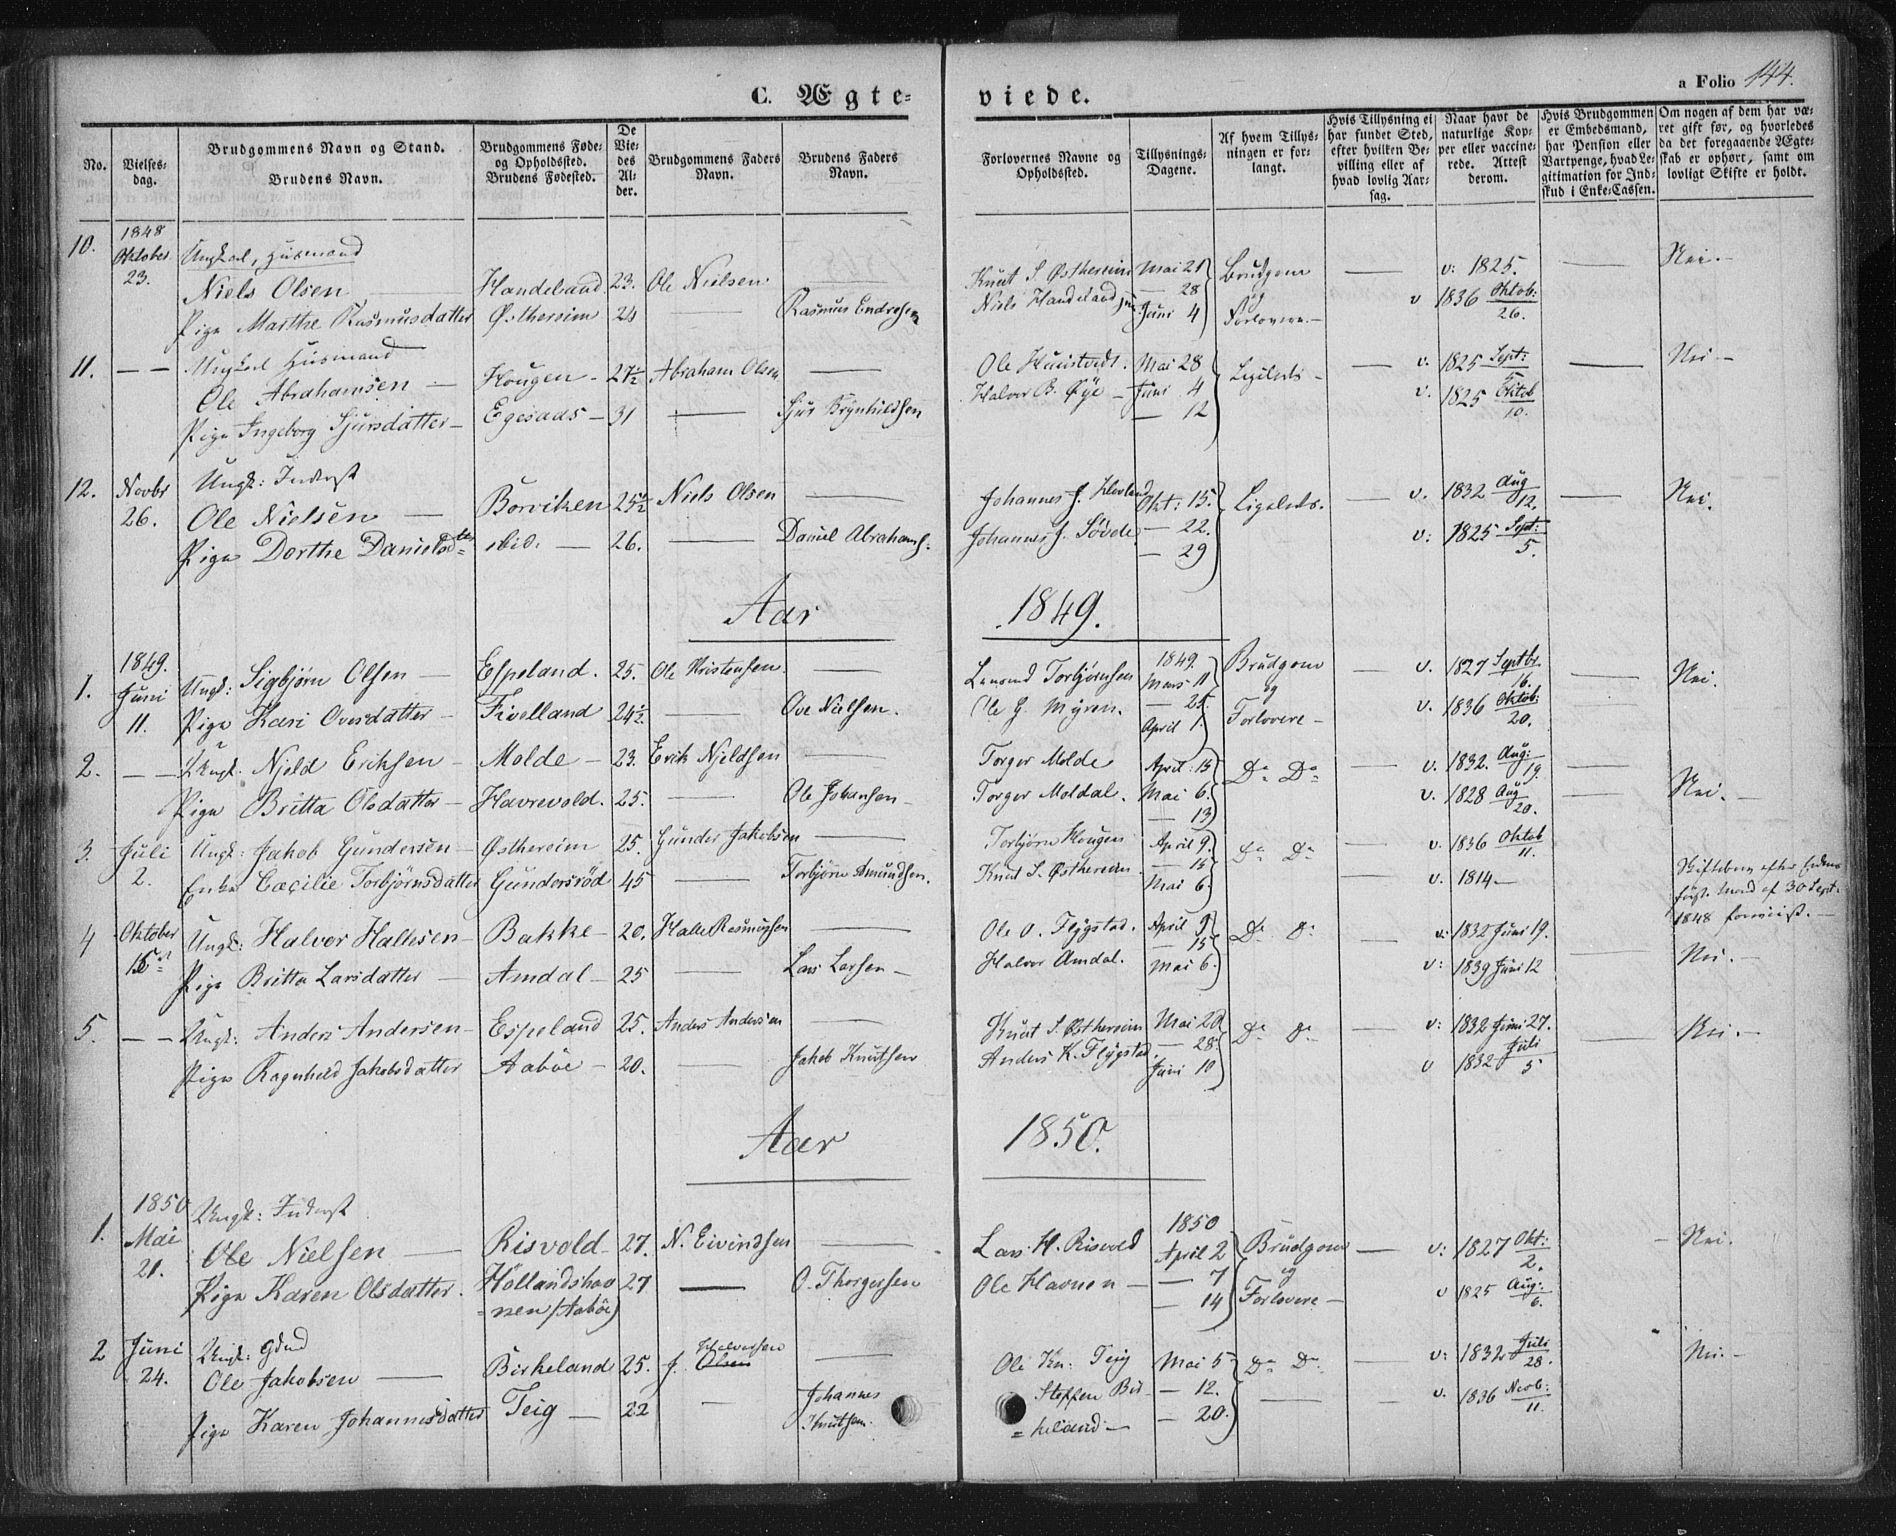 C. Ægte-
viede.
a Folio 144.
No.
Vielses-dag.
Brudgommens Navn og Stand.
Brudens Navn.
Brudgommens Føde- og Opholdssted.
Brudens Fødested.
De Vie-des Al-der.
Brudgommens Faders Navn.
Brudens Faders Navn.
Forlovernes Navne og Opholdsted.
Tillysnings-Dagene.
Af hvem Tillys-ningen er for-langt.
Hvis Tillysning ei har fundet Sted, efter hvilken Be-villing eller af hvad lovlig Aar-sag.
Naar havt de naturlige Kop-per eller vaccine-rede. Attest derom.
Hvis Brudgommen er Embedsmand, har Pension eller Vartpenge, hvad Le-gitimation for Ind-skud i Enke-Cassen.
Om nogen af dem har væ-ret gift før, og hvorledes da det foregaaende Ægte-skab er ophørt, samt om lovligt Skifte er holdt.
10. 1848 Oktober 23. Ungkarl, Husmand
Niels Olsen — Handeland. 23. Ole Nielsen. Knut S. Østhereim Mai 21 Brudgom — v: 1825. Nei. —
Pige Marthe Rasmusdatter Østhereim 24 — Rasmus Endresen Niels Handeland jun. — 28 Juni 4 og Forlovere. — v 1836 Oktob: 26.
11. — — Ungkarl Husmand
Ole Abrahamsen — Hougen — 27½ Abraham Olsen — Ole Mai 28 Ligeleds — v. 1825 Sept: 5 — Nei —
Pige Ingeborg Sjursdatter — Egesaas — 31 — Sjur Brynhildsen Halvor B. Øye — Juni 4 — 12 v. 1825 Oktob 10.
12. Novbr 26. Ungk: Inderst
Ole Nielsen — Borviken 25½ Niels Olsen — Johannes J. Hovland Okt: 15. Ligeleds. — v. 1832 Aug 12. — Nei.
Pige Dorthe Danielsdtr ibid: — 26. — Daniel Abrahams: Johannes J. Søvde — 22. — 29 v: 1825 Sept: 5.
Aar 1849.
1. 1849. Juni 11. Ungk: Sigbjørn Olsen — Espeland. 25. Ole Kristensen. — Torbjørnsen 1849. Mars 11 Brudgom — v. 1827 Septbr. 16. — Nei.
Pige Kari Ovesdatter — Fivelland 24½ — Ove Nielsen. Ole G. Myren. — 25. April 1. og Forlovere — v. 1836 Oktob: 20.
2. — — Ungk. Njeld Eriksen — Molde — 23. Erik Njeldsen — Torger Molde April: 15 Do Do — v. 1832. Aug: 19. —
Pige Britta Olsdatter — Havrevold. 25. — Ole Johansen — Torger Moldal. Mai 6. — 13 v. 1828 Aug 20. Nei. —
3. Juli 2. Ungk: Jakob Gundersen — Østhereim 25. Gunder Jakobsen — Torbjørn Hougen April 9. Do Do — v. 1836 Oktob 11.
Enke Cæcilie Torbjørnsdatter Gundersrød 45 — Torbjørn Amundsen. Knut S. Østhereim — 15 Mai 6. v. 1814 — Skiftebrev efter Enkens forr. Mand af 30 Sept. 1848 foreviist. —
4 Oktober 15 Ungk: Halvor Hallesen — Bakke — 20. Halle Rasmussen — Ole O. Flygstad. April 9 Do Do — v: 1832 Juni 19.
Pige Britta Larsdatter — Amdal — 25 — Lars Larsen — Halvor Amdal. — 15 Mai 6. v: 1839 Juni 12 Nei. —
5. — — Ungk: Anders Andersen — Espeland 25. Anders Andersen — Knut S. Østhereim Mai 20 Do Do — v: 1832 Juni 27. — Nei —
Pige Ragnhild Jakobsdatter Aaböe — 20. — Jakob Knutsen Anders K. Flygstad. — 28. Juni 10 v 1832 Juli 5
Aar 1850.
1. 1850 Mai 21. Ungk: Inderst
Ole Nielsen — Risvold — 27. N. Eivindsen — Lars H. Risvold 1850 April 2 Brudgom — v: 1827 Okt: 2. — Nei.
Pige Karen Olsdatter. Hollandshav=nen (Aaböe) 27 — O. Thorgersen Ole Havnen — — 7 — 14 og Forlovere — v 1825 Aug: 6.
2 Juni 24. Ungk: Grmd
Ole Jakobsen — Birkeland 25. J. Olsen Halvorsen — Ole Kn: Teig Mai 5 Do Do — v: 1832 Juli 28. Nei. —
Pige Karen Johannesdatter Teig — 22 — Johannes Knutsen. Steffen Bir=keland — — 12. — 20. — v. 1836 Novb: 11.